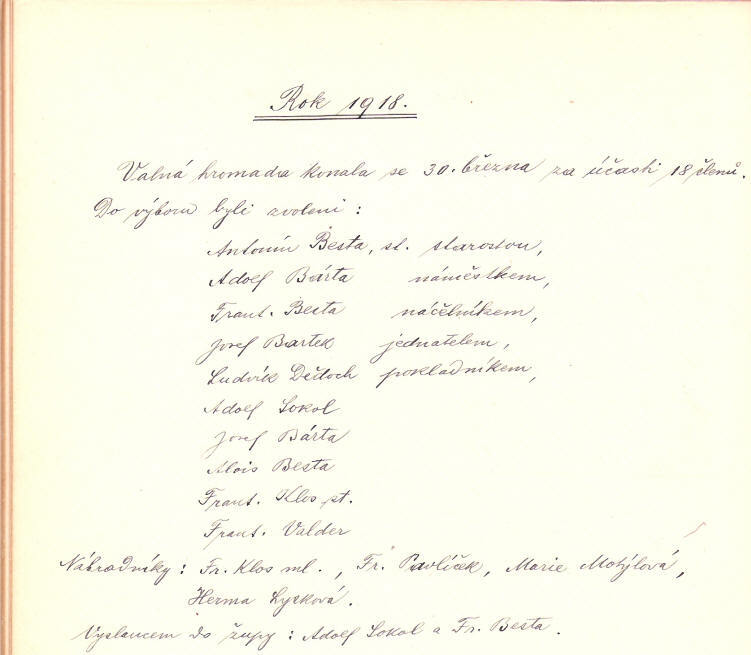 Rok 1918.
Valná hromada konala se 30. března za účasti 18 členů.
Do výboru byli zvoleni :
Antonín Besta, st. starostou,
Adolf Bárta náměstkem,
Frant. Besta náčelníkem,
Josef Bartek jednatelem,
Ludvík pokladníkem,
Adolf Sokol
Josef Bárta
Alois Besta
Frant. Klos st.
Frant. Valder
Náhradníky : Fr. Klos ml. , Fr. Pavlíček, Marie Motýlová,
Herma Lysková.
Vyslancem do župy : Adolf Sokol a Fr. Besta.